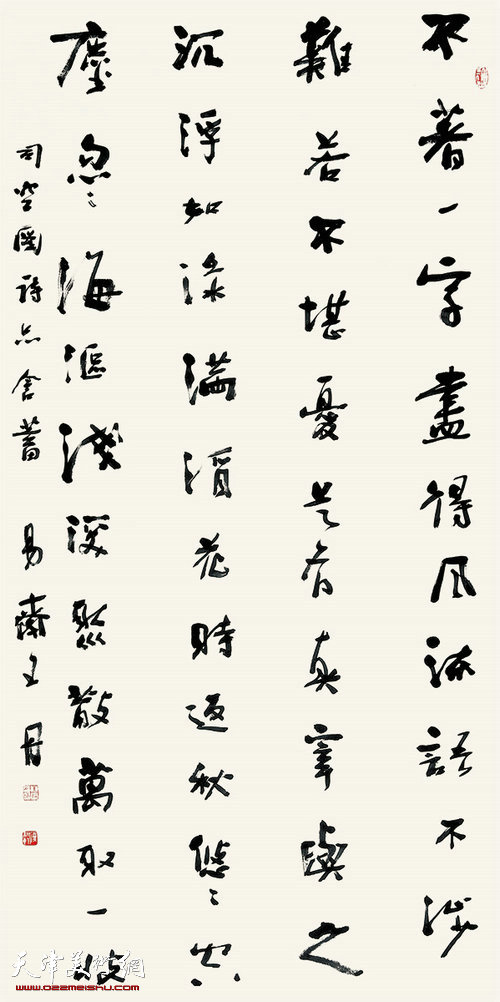 不著一字盡得風流語不涉
難若不堪憂是有真宰與之
沉浮如淥滿酒花時返秋悠悠空
塵忽忽海漚淺深聚散萬取一收
司空圖詩品含蓄 易齋王丹
天津美術網
www.022meishu.com